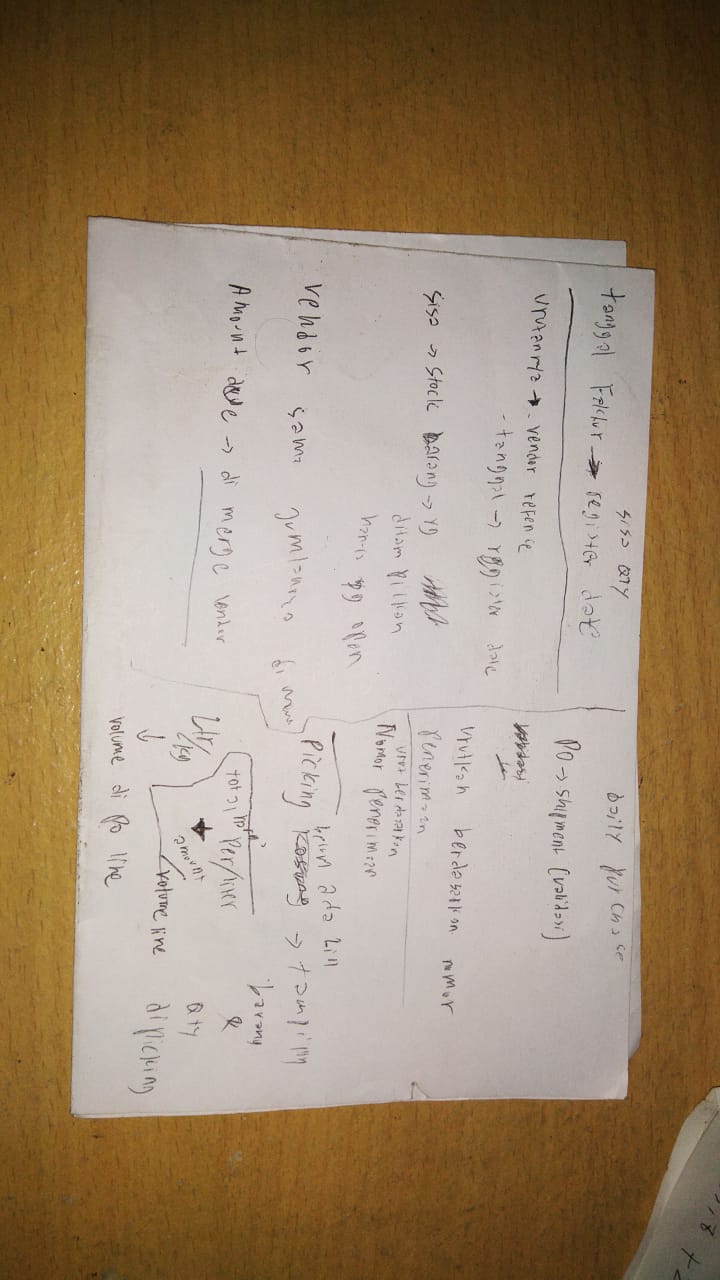 sisa QTY
tanggal Faktur → register date
Urutannya → - vendor refence
- tanggal → register date
sisa → stock barang → yg
ditampilkan
hanya yg open
Vendor sama jumlahnya di
Amount due → di merge vendor
Daily purchase
PO → shipment (validasi)
Urutkan berdasarkan nomor
penerimaan
Urut berdasarkan
Nomor penerimaan
belum ada
Picking → tampilin
barang
&
Qty
dipicking
total Per/liter
Ltr/kg
amount/volume line
↓
volume di po line